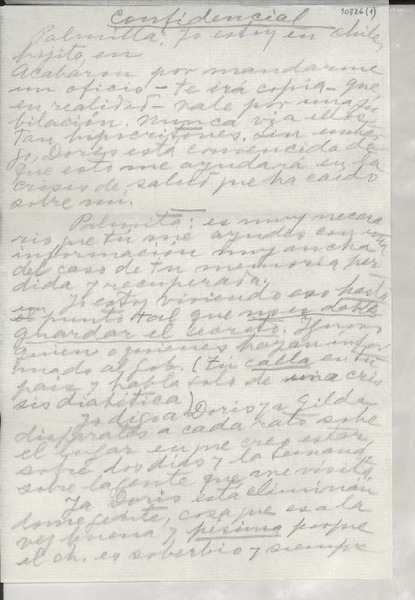 10826(1)
Confidencial
Palmita: Yo estoy en Chile,
hijita, en
Acabaron por mandarme
un oficio - te irá copia - que
en realidad - vale por una ju
bilación. Nunca vi a ellos
tan hipocritones. Sin embar
go, Doris está convencida de
que esto me ayudará en la
crisis de salud que ha caído
sobre mí.
Palmita: es muy necesa
rio que tú me ayudes con una
información muy ancha
del caso de tu memoria per
dida y recuperada.
Yo estoy viviendo eso hasta
un punto tal que no es dable
guardar el secreto. Ignoro
quien o quienes hayan infor
mado al Gob. (Tú calla en tu
país y habla solo de una cri
sis diabética)
Yo digo a Doris y a Gilda
disparates a cada rato sobre
el lugar en que creo estar,
sobre los días y la semana,
sobre la gente que me visita
Ya Doris está eliminán
dome gente, cosa que es a la
vez buena y pésima porque
el ch. es soberbio y siempre